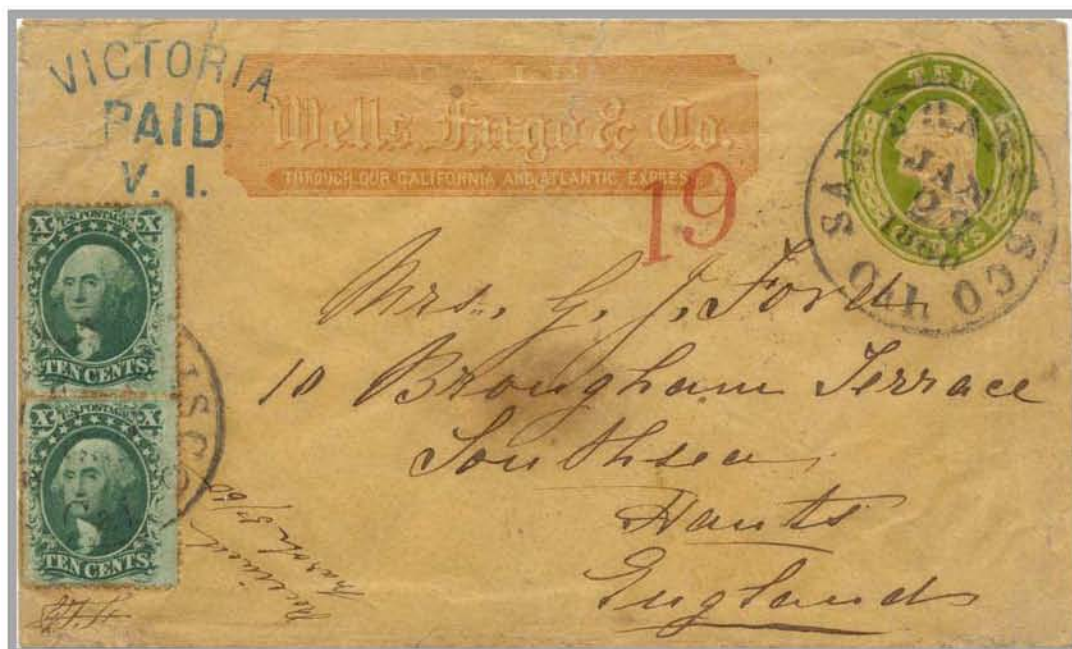 VICTORIA
PAID
V. I.
PAID
Wells, Fargo & Co.
THROUGH OUR CALIFORNIA AND ATLANTIC EXPRESS
TEN
CENTS
SAN FRANCISCO
JAN
19
U.S. POSTAGE
X X
TEN CENTS
U.S. POSTAGE
X X
TEN CENTS
ISCO
Mrs. G. J. Ford
10 Brougham Terrace
Southsea
Hants
England
Received
March 5/60